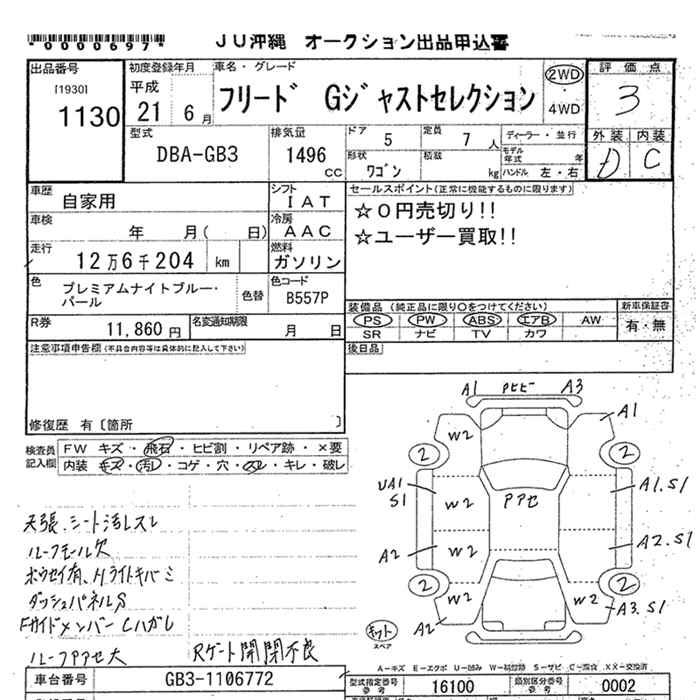 *0000697*
JU沖縄 オークション出品申込書
出品番号
[1930]
1130
初度登録年月
平成
21 6月
車名・グレード
フリード Gジャストセレクション
2WD
・
4WD
評価点
3
外装 内装
D C
型式
DBA-GB3
排気量
1496
cc
ドア
5
定員
7 人
形状
ワゴン
積載
kg
ディーラー・並行
モデル年式 年
ハンドル 左・右
車歴
自家用
シフト
IAT
車検
年 月( 日)
冷房
AAC
走行
12万6千204 km
燃料
ガソリン
色
プレミアムナイトブルー・パール
色替
色コード
B557P
R券
11,860 円
名変通知期限
月 日
セールスポイント(正常に機能するものに限ります)
☆0円売切り!!
☆ユーザー買取!!
装備品 (純正品に限り○をつけてください)
PS PW ABS エアB AW
SR ナビ TV カワ
新車保証書
有・無
後日品
注意事項申告欄(不具合内容等は具体的に記入して下さい)
修復歴 有〔箇所 〕
検査員
記入欄
FW キズ・飛石・ヒビ割・リペア跡・×要
内装 キズ・汚レ・コゲ・穴・スレ・キレ・破レ
天張、シート汚レスレ
ルーフモール欠
ホウセイ有、Hライトキバミ
ダッシュパネルS
FサイドメンバーCハガレ
ルーフアアセ大 Rゲート開閉不良
A1 PヒビB A3
A1
W2
2 2
UA1
S1
W2
アアセ
A1.S1
A2
W2
A2.S1
2 2
W2 W2
A2
A3.S1
キット
スペア
A-キズ E-エクボ U-凹み W-補修跡 S-サビ C-腐食 XX-交換済
車台番号
GB3-1106772
型式指定番号
参考
16100
類別区分番号
参考
0002